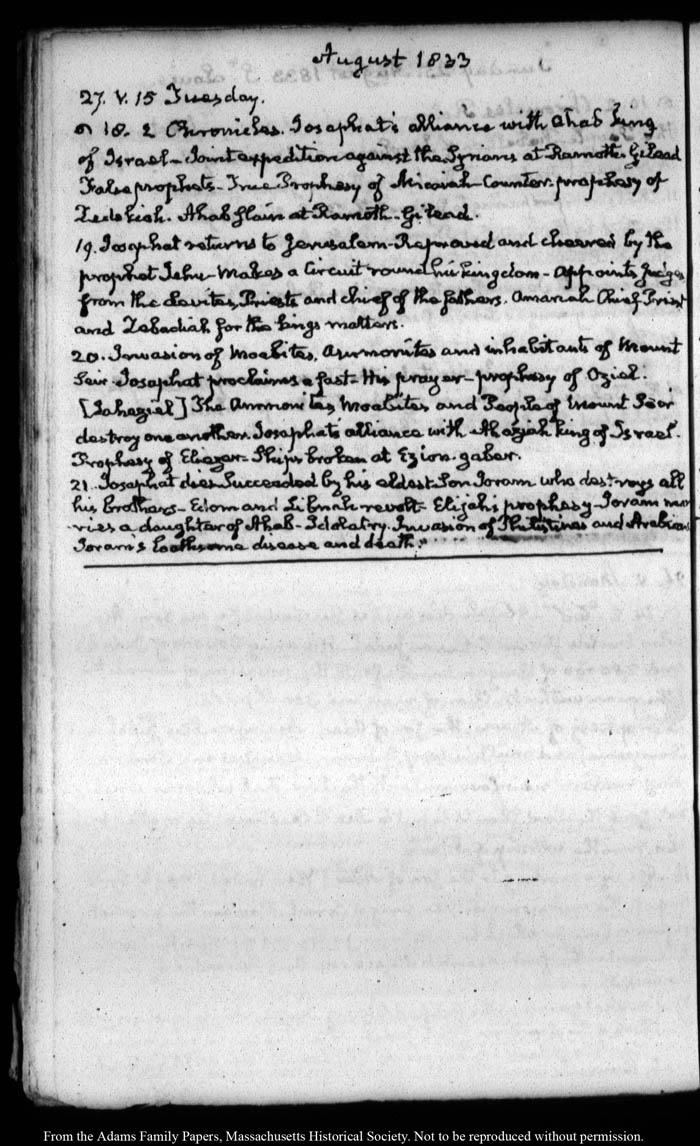 August 1833
27. V. 15 Tuesday.
18. 2 Chronicles. Josaphat's alliance with Ahab king
of Israel - Joint expedition against the Syrians at Ramoth-Gilead
False prophets - True Prophesy of Micaiah - Counter-prophesy of
Zedekiah. Ahab slain at Ramoth-Gilead.
19. Josaphat returns to Jerusalem - Reproved and cheered by the
prophet Jehu - Makes a Circuit round his kingdom - Appoints Judges
from the Levites, Priests and chief of the fathers. Amariah Chief Priest
and Zebadiah for the kings matters.
20. Invasion of Moabites, Ammonites and inhabitants of Mount
Seir - Josaphat proclaims a fast - His prayer - prophesy of Oziel.
[Jahaziel] The Ammonites, Moabites and People of Mount Seir
destroy one another. Josaphat's alliance with Ahaziah king of Israel.
Prophesy of Eliezer - Ships broken at Ezion-gaber.
21. Josaphat dies Succeeded by his eldest Son Joram who destroys all
his brothers - Edom and Libnah revolt - Elijah's prophesy - Joram mar
-ries a daughter of Ahab - Idolatry. Invasion of Philistines and Arabians
Joram's loathsome disease and death.
From the Adams Family Papers, Massachusetts Historical Society. Not to be reproduced without permission.